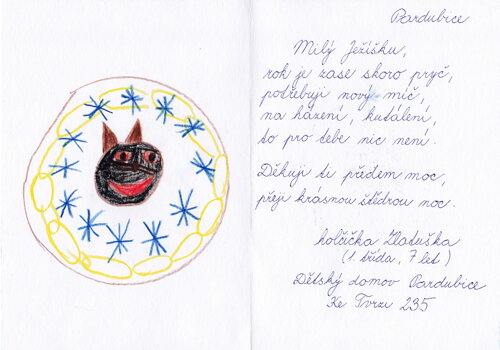 Pardubice
Milý Ježíšku,
rok je zase skoro pryč,
potřebuji nový míč,
na házení, kutálení,
to pro tebe nic není.
Děkuji ti předem moc,
přeji krásnou štědrou noc.
holčička Zlatuška
(1. třída, 7 let)
Dětský domov Pardubice
Ke Tvrzi 235